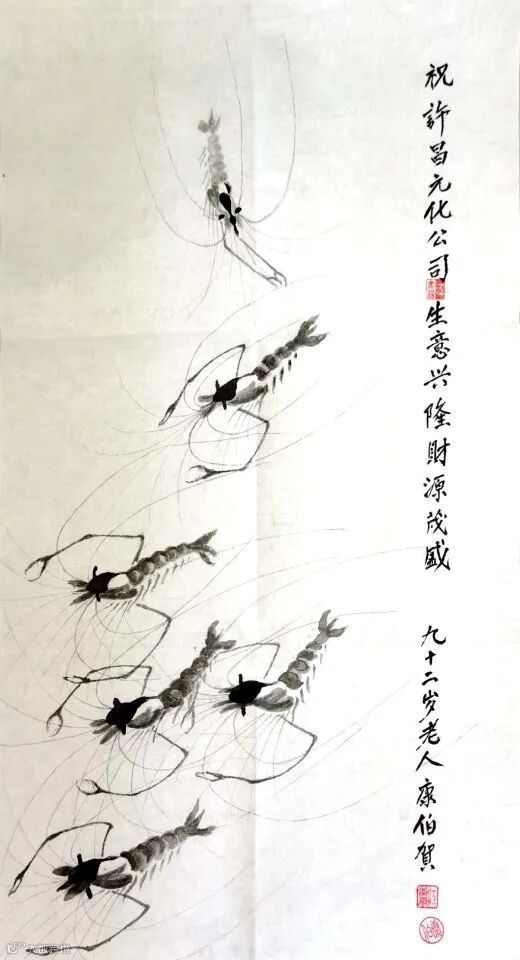 祝許昌元化公司生意兴隆財源茂盛
九十二岁老人康伯贺